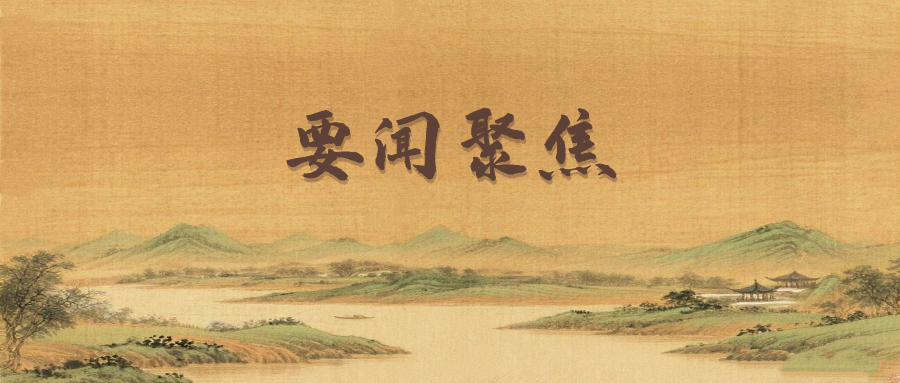 要闻聚焦